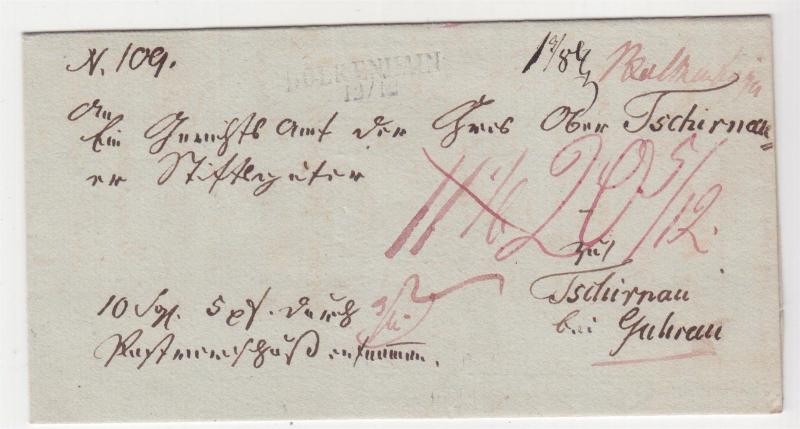 N. 109.
BOLKENHAIN
12/12
An
Ein Gerichts Amt der Ober Tschirnau=
er Stiftsgüter
20 5/12.
zu
Tschirnau
bei Guhrau
10 Sgr. 5 pf. durch
Postvorschuß entnommen.